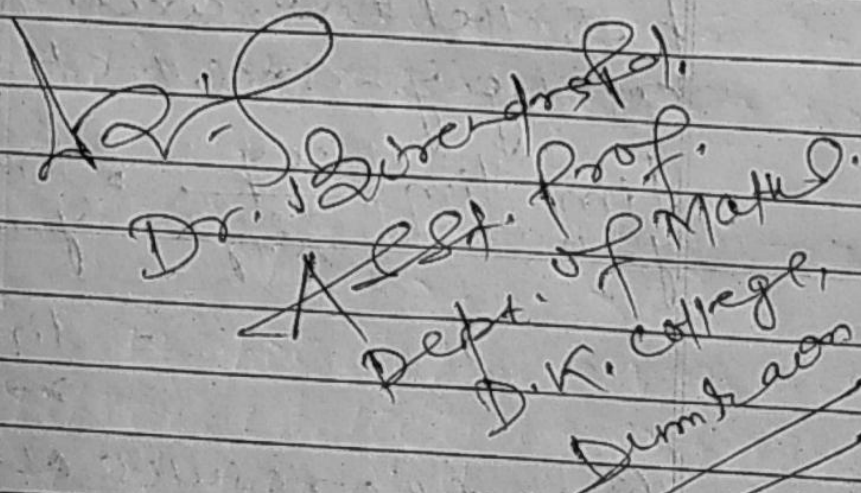 Dr. Birendra Pd.
Asst. Prof.
Dept. of Maths.
D.K. College,
Dumraon